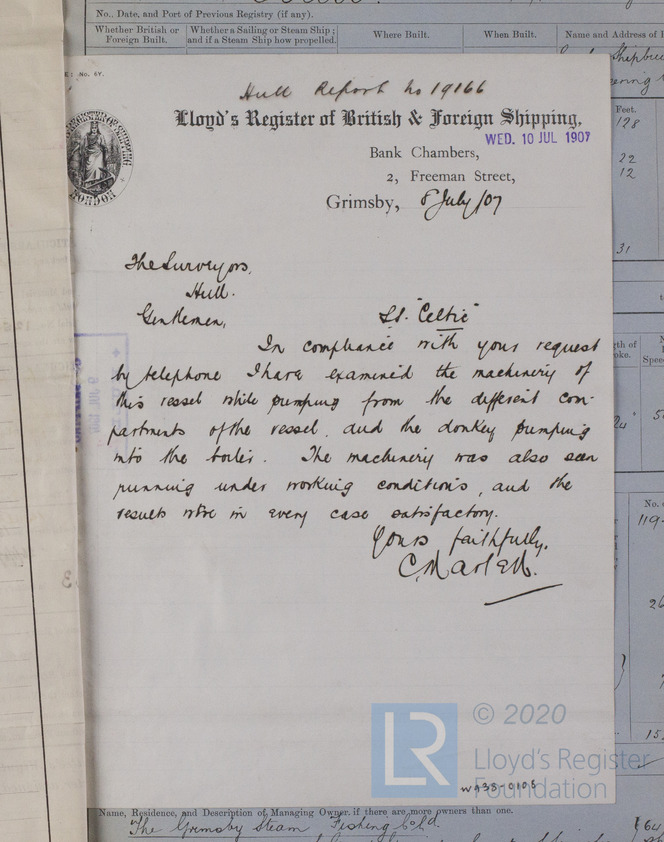 No., Date, and Port of Previous Registry (if any).
Whether British or Foreign Built.
Whether a Sailing or Steam Ship; and if a Steam Ship how propelled.
Where Built.
When Built.
Name and Address of
No. 6Y.
Hull Report No 19166
Lloyd's Register of British & Foreign Shipping,
WED. 10 JUL 1907
Bank Chambers,
2, Freeman Street,
Grimsby, 8 July/07
LONDON
Feet.
128
22
12
31
The Surveyors,
Hull.
Gentlemen, "Celtic"
In compliance with your request
by telephone I have examined the machinery of
this vessel while pumping from the different com-
partments of the vessel, and the donkey pumping
into the boiler. The machinery was also seen
running under working conditions, and the
results were in every case satisfactory.
Yours faithfully,
No. of
119
26
15
LR
© 2020
Lloyd's Register
Foundation
W938-0108
Name, Residence, and Description of Managing Owner, if there are more owners than one.
The Grimsby Steam Fishing Co Ld.
(64